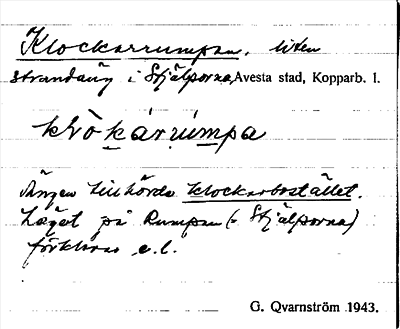 Klockarrumpan, liten
strandäng i Stjälporna, Avesta stad, Kopparb. l.
klòkárrúmpa
Ängen tillhörde klockarbostället.
Läget på Rumpan (= Stjälporna)
förklaras e.l.
G. Qvarnström 1943.